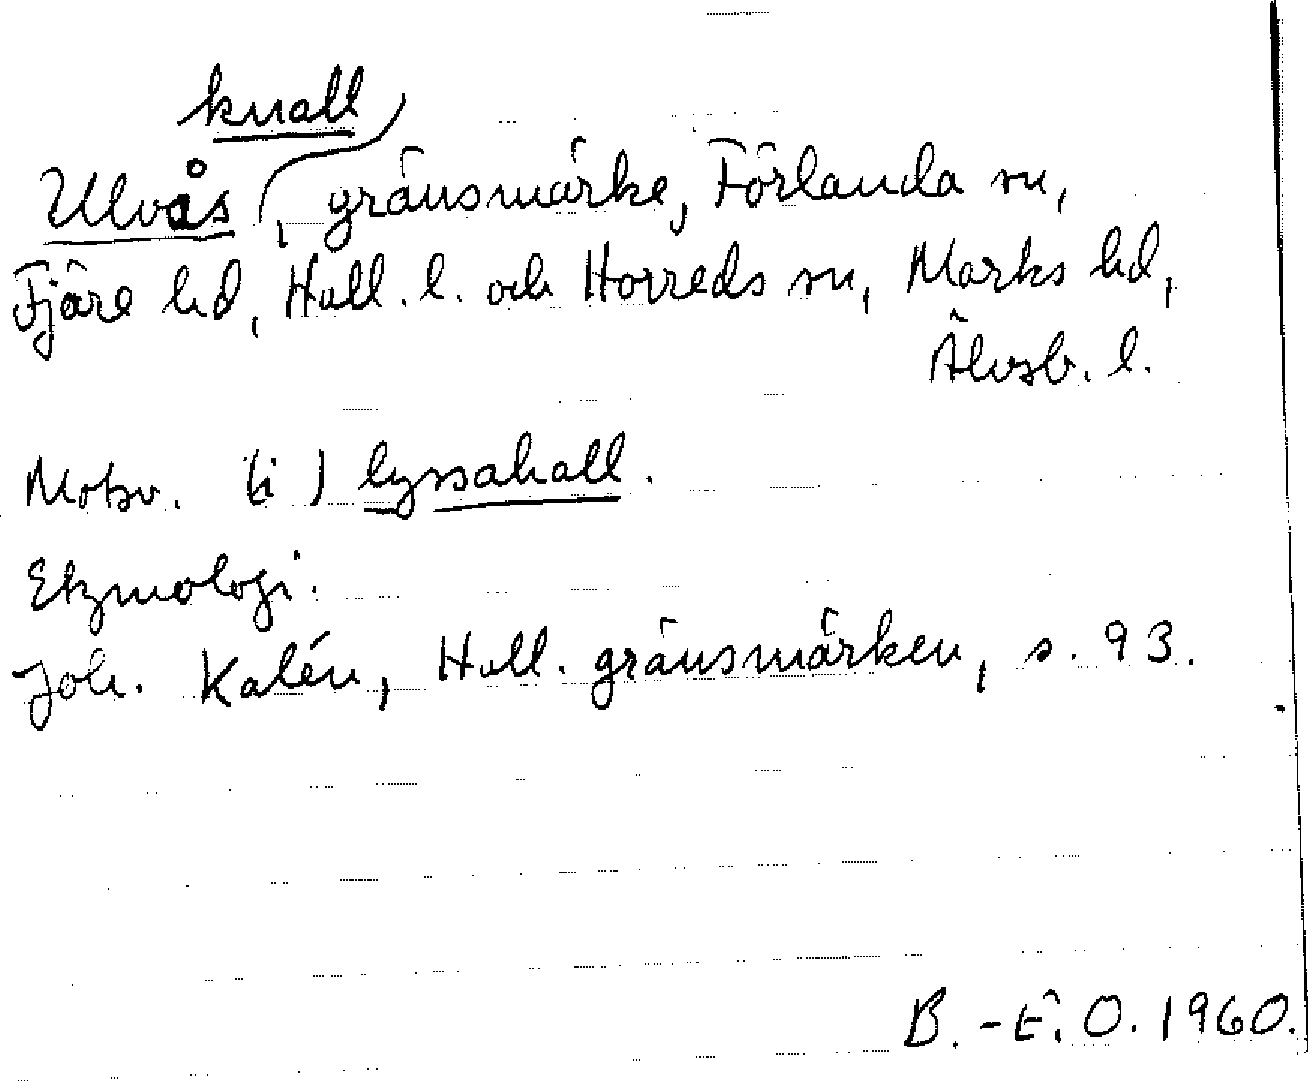 knall
Ulvås, gränsmärke, Förlanda sn,
Fjäre hd, Hall. l. och Horreds sn, Marks hd,
Älvsb. l.
Motsv. ti) lyssahall.
Etymologi.
Joh. Kalén, Hall. gränsmärken, s. 93.
B.-E. O. 1960.